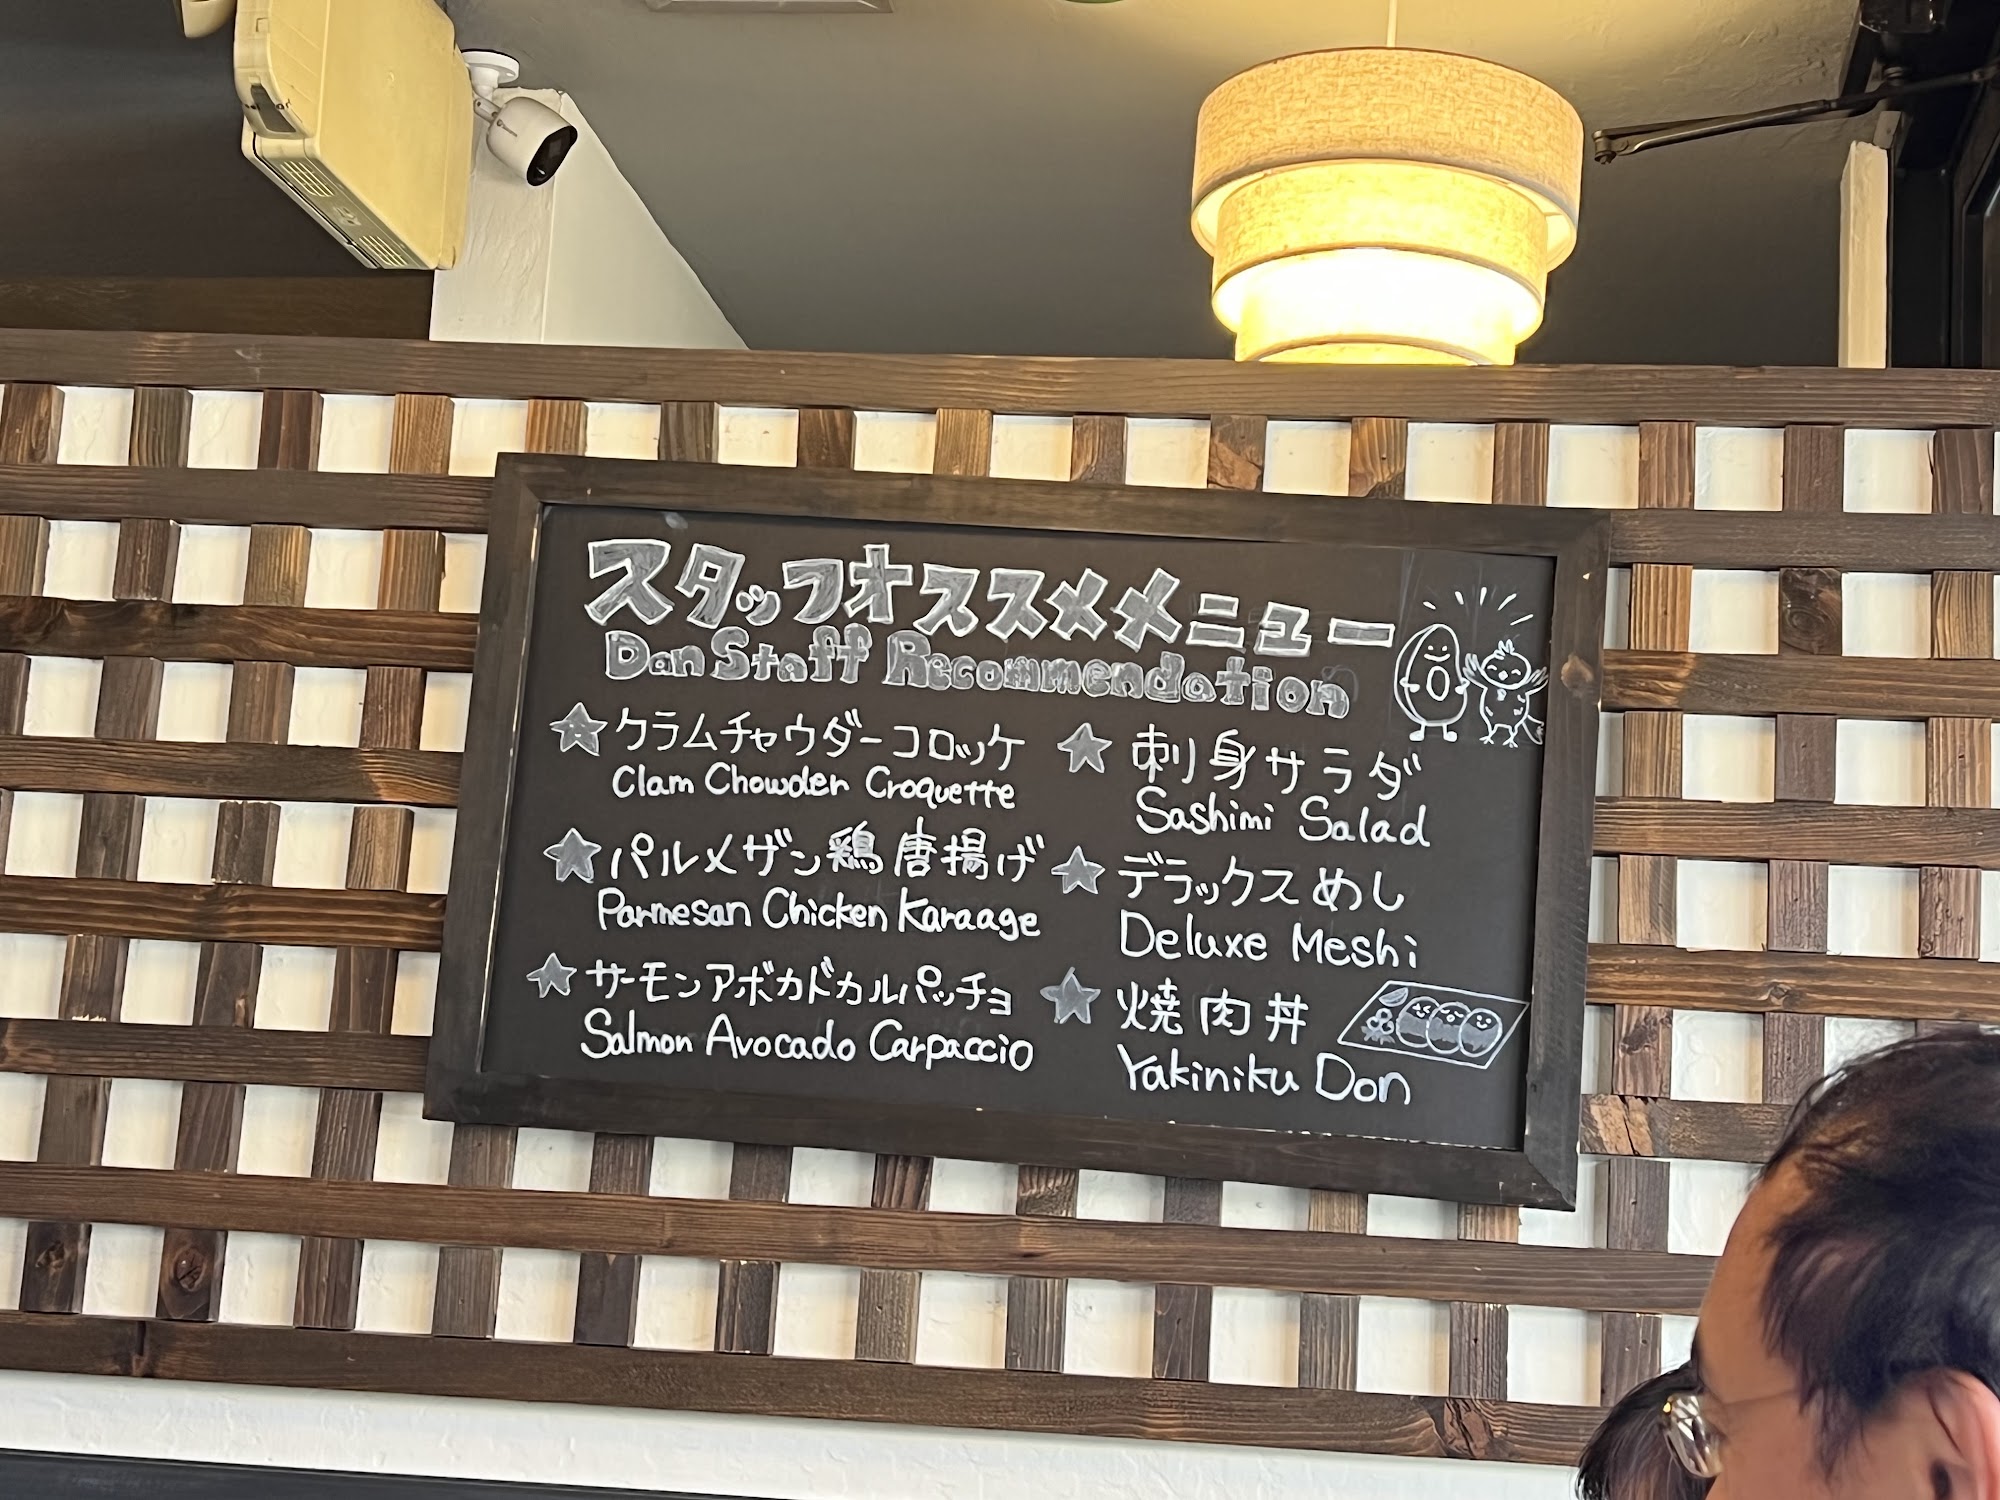 スタッフオススメメニュー
Dan Staff Recommendation
★クラムチャウダーコロッケ
Clam Chowder Croquette
★パルメザン鶏唐揚げ
Parmesan Chicken Karaage
★サーモンアボカドカルパッチョ
Salmon Avocado Carpaccio
★刺身サラダ
Sashimi Salad
★デラックスめし
Deluxe Meshi
★焼肉丼
Yakiniku Don